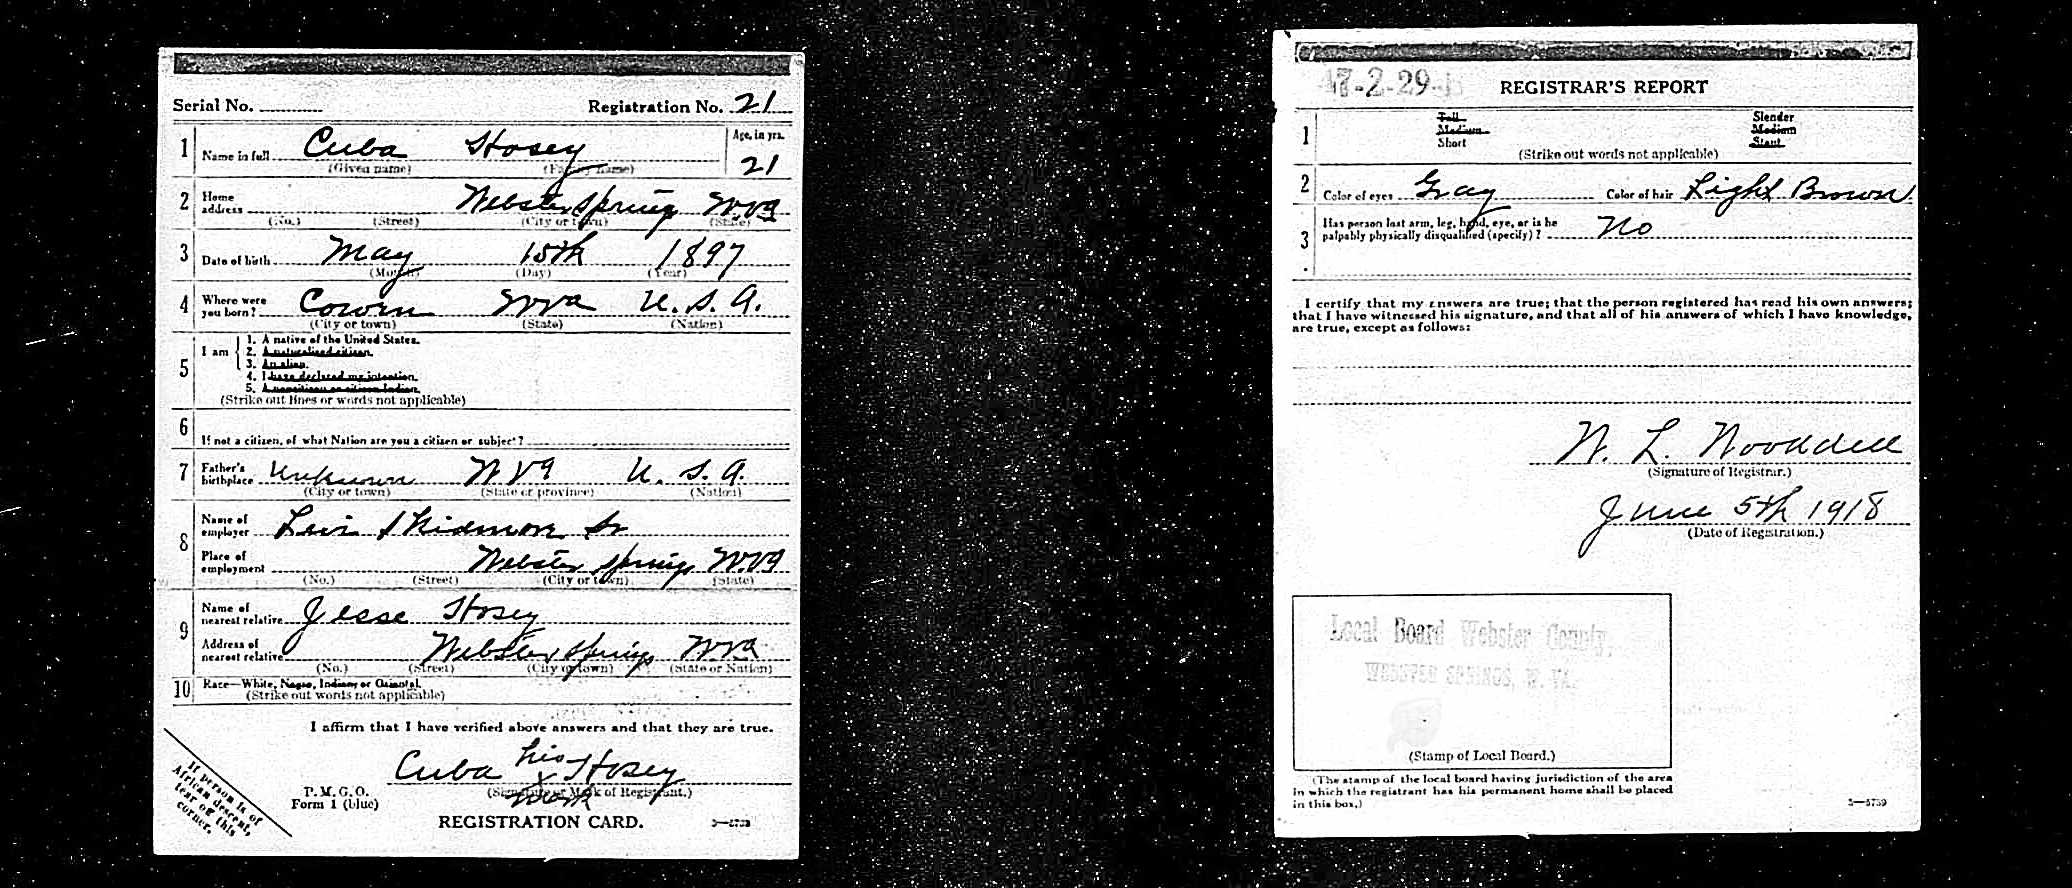 Serial No.
Registration No. 21
1 Name in full Cuba Hosey
(Given name) (Family name)
Age, in yrs.
21
2 Home address Webster Springs W.Va
(No.) (Street) (City or town) (State)
3 Date of birth May 15th 1897
(Month) (Day) (Year)
4 Where were you born? Cowen W Va U. S. A.
(City or town) (State) (Nation)
5 I am
1. A native of the United States.
2. A naturalized citizen.
3. An alien.
4. I have declared my intention.
5. A noncitizen or citizen Indian.
(Strike out lines or words not applicable)
6 If not a citizen, of what Nation are you a citizen or subject?
7 Father's birthplace Unknown W Va U. S. A.
(City or town) (State or province) (Nation)
8 Name of employer Levi Skidmore Sr
Place of employment Webster Springs W.Va
(No.) (Street) (City or town) (State)
9 Name of nearest relative Jesse Hosey
Address of nearest relative Webster Springs W.Va
(No.) (Street) (City or town) (State or Nation)
10 Race—White, Negro, Indian, or Oriental.
(Strike out words not applicable)
I affirm that I have verified above answers and that they are true.
Cuba his Hosey
X
(Signature or Mark of Registrant.)
mark
P. M. G. O.
Form 1 (blue)
REGISTRATION CARD.
If person is of
African descent,
tear off this
corner.
47-2-29-
REGISTRAR'S REPORT
1 Tall Slender
Medium Medium
Short Stout
(Strike out words not applicable)
2 Color of eyes Gray Color of hair Light Brown
3 Has person lost arm, leg, hand, eye, or is he
palpably physically disqualified (specify)? No
I certify that my answers are true; that the person registered has read his own answers;
that I have witnessed his signature, and that all of his answers of which I have knowledge,
are true, except as follows:
W. L. Wooddell
(Signature of Registrar.)
June 5th 1918
(Date of Registration.)
Local Board Webster County,
WEBSTER SPRINGS, W. VA.
(Stamp of Local Board.)
(The stamp of the local board having jurisdiction of the area
in which the registrant has his permanent home shall be placed
in this box.)
3—5739